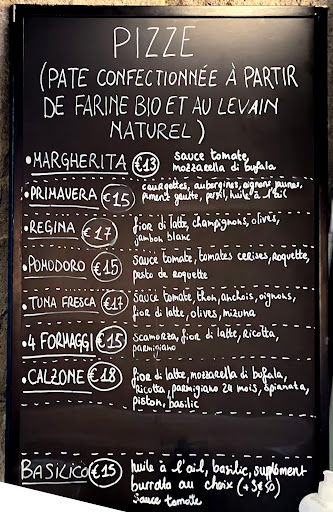 PIZZE
(PATE CONFECTIONNÉE À PARTIR
DE FARINE BIO ET AU LEVAIN
NATUREL)
•MARGHERITA €13 sauce tomate,
mozzarella di bufala
•PRIMAVERA €15 courgettes, aubergines, oignons jaunes,
piment goutte, persil, huile à l'ail
•REGINA €17 fior di latte, champignons, olives,
jambon blanc
•POMODORO €15 sauce tomate, tomates cerises, roquette,
pesto de roquette
•TUNA FRESCA €17 sauce tomate, thon, anchois, oignons,
fior di latte, olives, mizuna
•4 FORMAGGI €15 scamorza, fior di latte, Ricotta,
parmigiano
•CALZONE €18 fior di latte, mozzarella di bufala,
Ricotta, parmigiano 24 mois, spianata,
piston, basilic
BASILICO €15 huile à l'ail, basilic, suplément
burrata au choix (+3€50)
sauce tomate